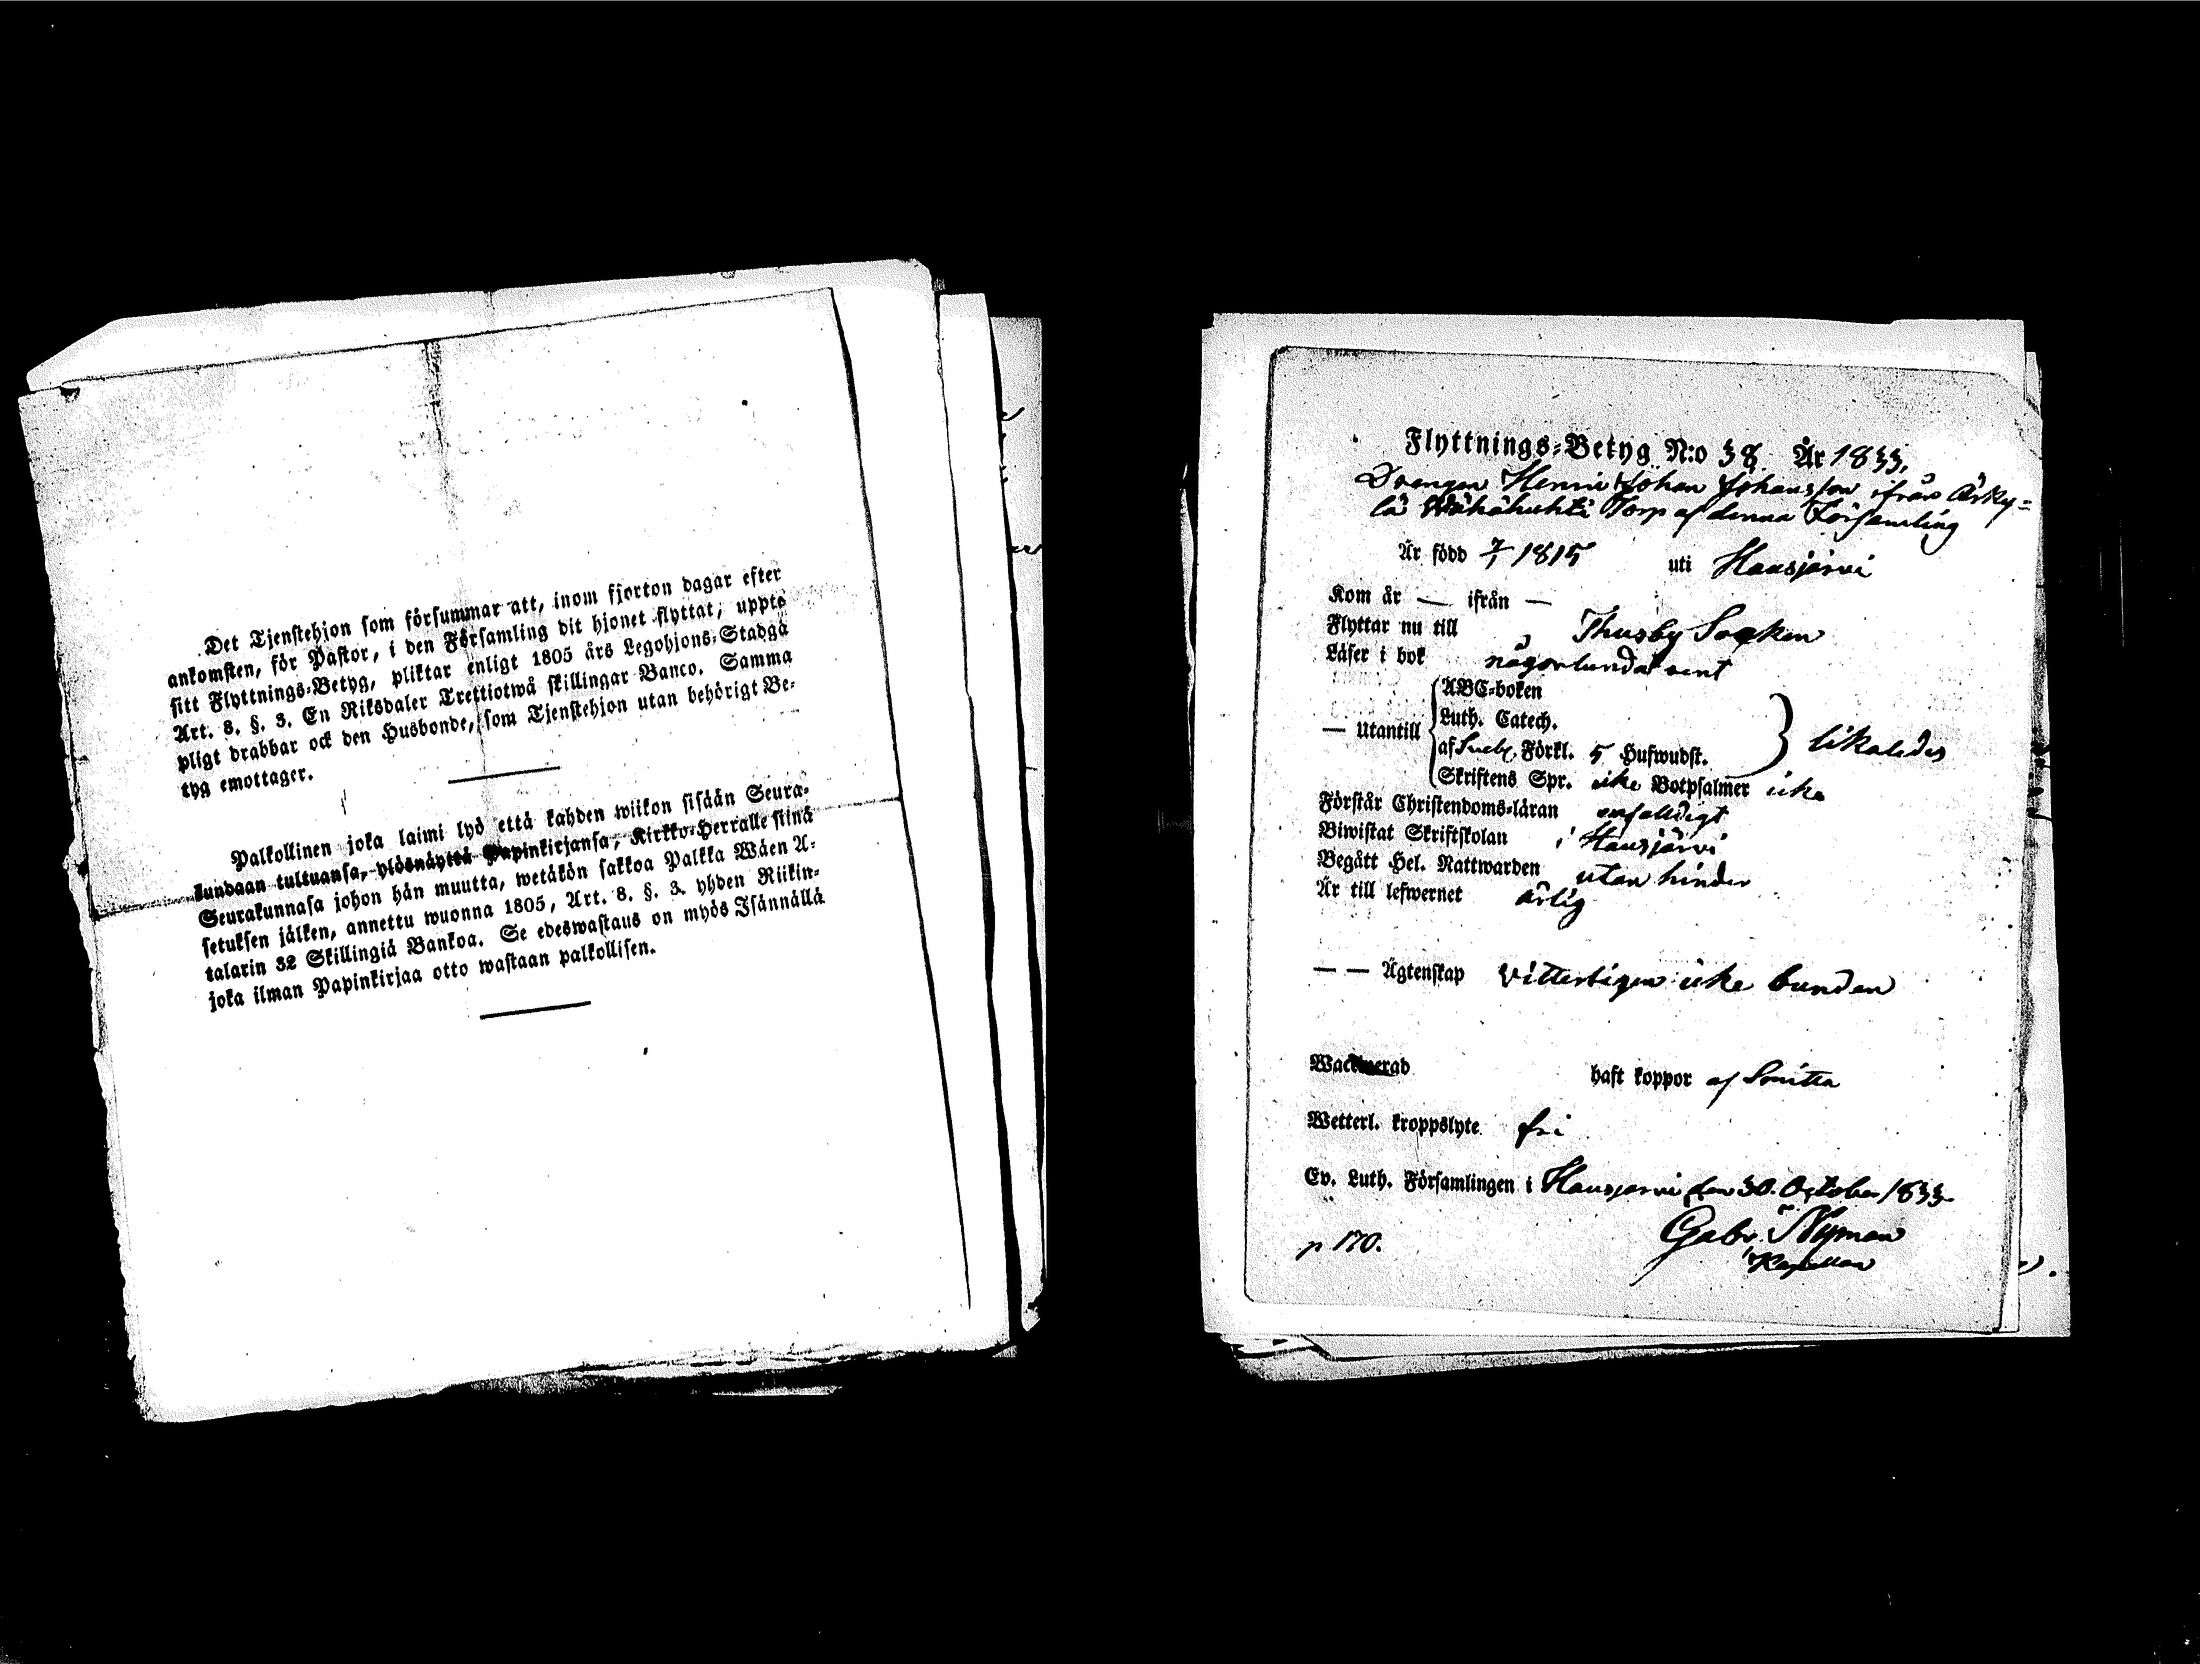 Det Tjenstehjon som försummar att, inom fjorton dagar efter
ankomsten, för Pastor, i den Församling dit hjonet flyttat, uppte
sitt Flyttnings-Betyg, pliktar enligt 1805 års Legohjons-Stadga
Art. 8. §. 3. En Riksdaler Trettiotwå skillingar Banco. Samma
pligt drabbar ock den Husbonde, som Tjenstehjon utan behörigt Be-
tyg emottager.
Palkollinen joka laimi lyö että kahden wiikon sisään Seura-
kundaan tultuansa, ylösnäyttä Papinkirjansa, Kirkko-Herralle siinä
Seurakunnasa johon hän muutta, wetäkön sakkoa Palkka Wäen A-
setuksen jälken, annettu wuonna 1805, Art. 8. §. 3. yhden Riikin-
talarin 32 Skillingiä Bankoa. Se edeswastaus on myös Isännällä
joka ilman Papinkirjaa otto wastaan palkollisen.
Flyttnings-Betyg N:o 38 År 1833.
Drengen Henric Johan Johansson ifrån Ärky-
lä Wähähuhti Torp af denna Församling
Är född 7/1 1815 uti Hausjärvi
Kom år — ifrån —
Flyttar nu till Thusby Socken
Läser i bok någorlunda rent
— Utantill
ABC-boken
Luth. Catech.
af Sveb. Förkl. 5 Hufwudst.
likaledes
Skriftens Spr. icke Botpsalmer icke
Förstår Christendoms-läran enfaldigt
Biwistat Skriftskolan i Hausjärvi
Begått Hel. Nattwarden utan hinder
Är till lefwernet ärlig
— — Ägtenskap vitterligen icke bunden
Waccinerad haft koppor af Smitta
Wetterl. kroppslyte fri
Ev. Luth. Församlingen i Hausjärvi den 30. October 1833
Gabr. Nyman
Kapellan
p 170.